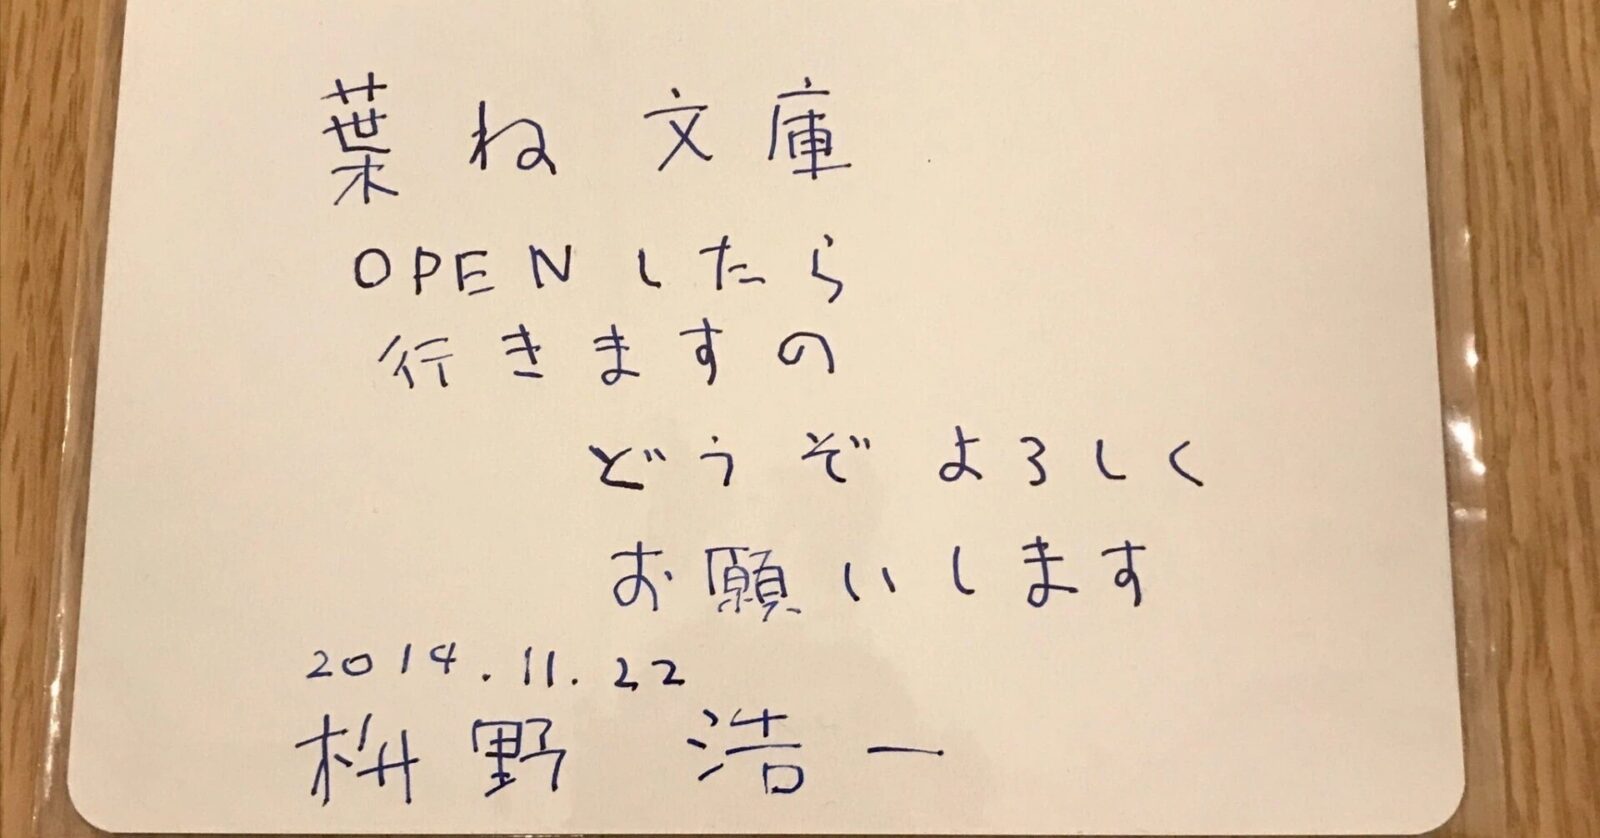 葉ね文庫
OPENしたら
行きますの
どうぞよろしく
お願いします
2014.11.22
枡野 浩一